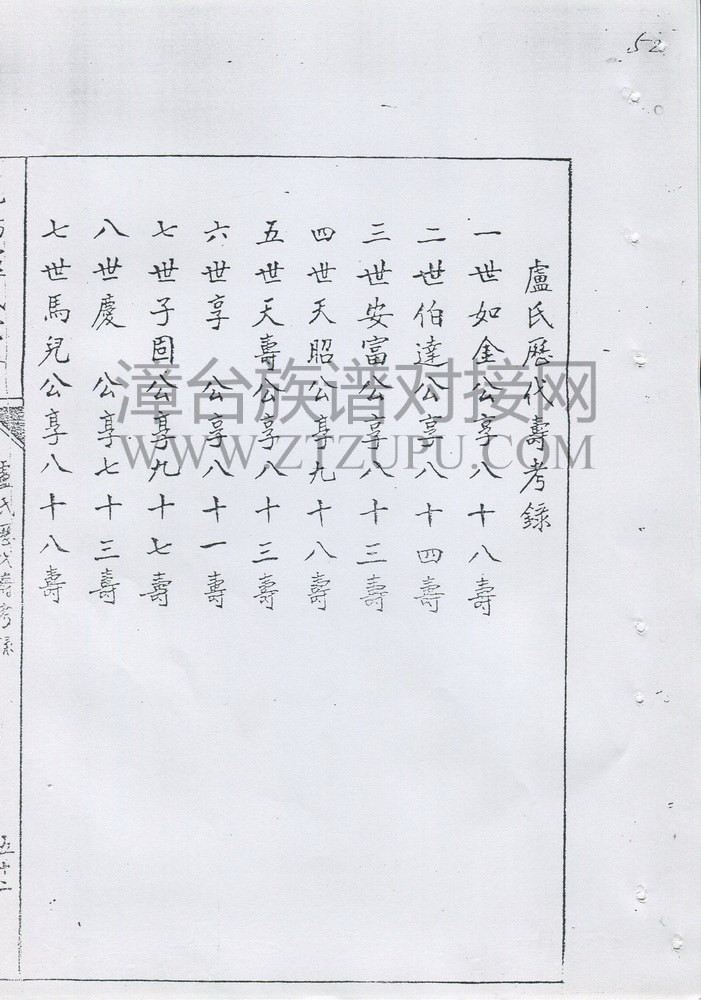 52
盧氏歷代壽考錄
一世如金公享八十八壽
二世伯達公享八十四壽
三世安富公享八十三壽
四世天昭公享九十八壽
五世天壽公享八十三壽
六世享 公享八十一壽
七世子固公享九十七壽
八世慶 公享七十三壽
七世馬兒公享八十八壽
盧氏歷代壽考錄
五十二
漳台族谱对接网
WWW.ZTZUPU.COM